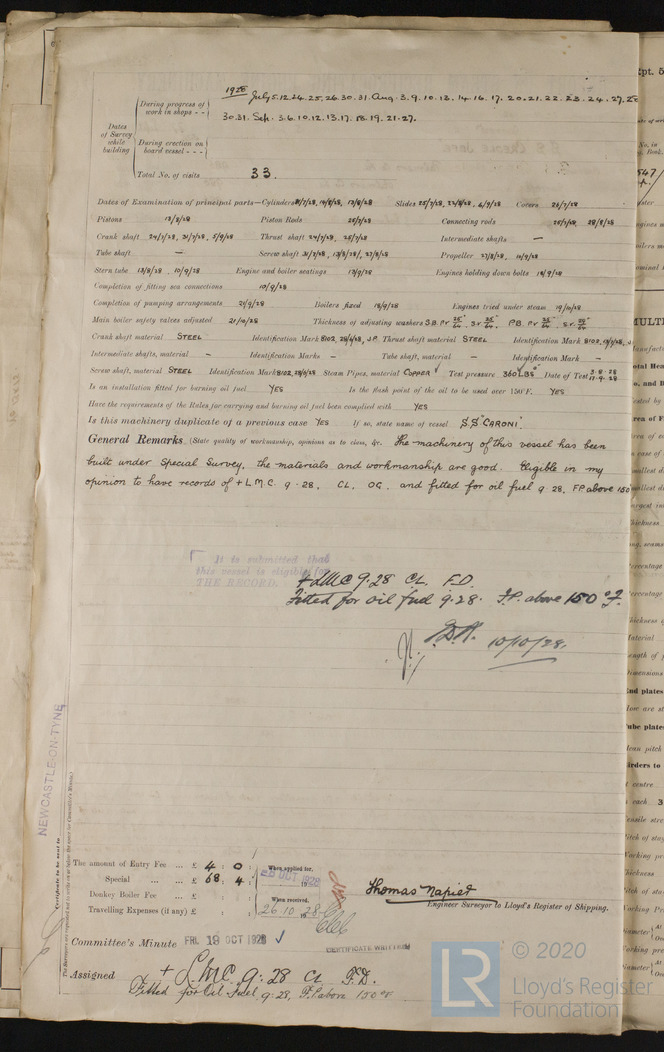 During progress of work in shops - - 1928 July 5.12.24.25.26.30.31. Aug. 3.9.10.13.14.16.17.20.21.22.23.24.27.
Dates of Survey while building
30.31. Sep. 3.6.10.12.13.17.18.19.21.27.
During erection on board vessel - - -
Total No. of visits 33.
Dates of Examination of principal parts—Cylinders Slides Covers 26/7/28
Pistons 13/8/28 Piston Rods 25/7/28 Connecting rods 25/7/28, 28/8/28
Crank shaft 24/7/28, 31/7/28, 5/9/28 Thrust shaft 24/7/28, 25/7/28 Intermediate shafts —
Tube shaft — Screw shaft 31/7/28, 13/8/28, 27/8/28 Propeller 27/8/28, 10/9/28
Stern tube 13/8/28, 10/9/28 Engine and boiler seatings 13/9/28 Engines holding down bolts 19/9/28
Completion of fitting sea connections 10/9/28
Completion of pumping arrangements 21/9/28 Boilers fixed 18/9/28 Engines tried under steam
Main boiler safety valves adjusted Thickness of adjusting washers S.B. P.V. S.V. P.B. P.V. S.V.
Crank shaft material STEEL Identification Mark 8102, J.P. Thrust shaft material STEEL Identification Mark 8102,
Intermediate shafts, material - Identification Marks - Tube shaft, material - Identification Mark -
Screw shaft, material STEEL Identification Mark 8102, Steam Pipes, material COPPER Test pressure 360 LBS Date of Test 3-8-28 17-9-28
Is an installation fitted for burning oil fuel YES Is the flash point of the oil to be used over 150°F. YES
Have the requirements of the Rules for carrying and burning oil fuel been complied with YES
Is this machinery duplicate of a previous case YES If so, state name of vessel S.S. "CARONI".
General Remarks (State quality of workmanship, opinions as to class, &c. The machinery of this vessel has been
built under Special Survey, the materials and workmanship are good. Eligible in my
opinion to have records of + L.M.C. 9.28, CL, OG, and fitted for oil fuel 9.28, F.P. above 150°
It is submitted that
this vessel is eligible for
THE RECORD.
+ LMC 9.28 CL. F.D.
Fitted for oil fuel 9.28. F.P. above 150°F.
10/10/28.
NEWCASTLE-ON-TYNE
Certificate to be sent to
The amount of Entry Fee ... £ 4 : 0 : When applied for,
Special ... £ 68 : 4 : OCT 1928
Donkey Boiler Fee ... £ : : When received,
Travelling Expenses (if any) £ : : 26.10.28
Thomas Napier
Engineer Surveyor to Lloyd's Register of Shipping.
Committee's Minute FRI. 19 OCT 1928
CERTIFICATE WRITTEN
Assigned + L.M.C. 9.28 CL F.D.
Fitted for Oil Fuel, 9.28, F.P. above 150°F
LR
© 2020
Lloyd's Register
Foundation